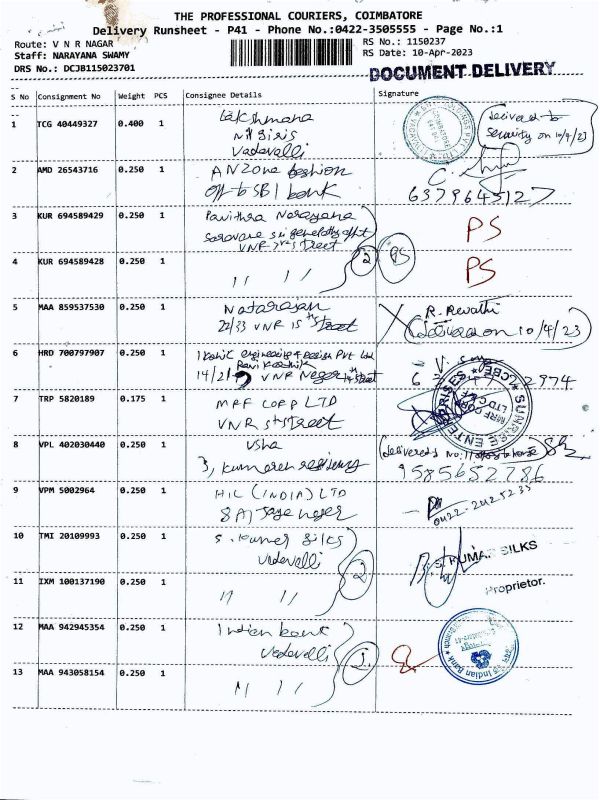 THE PROFESSIONAL COURIERS, COIMBATORE
Delivery Runsheet - P41 - Phone No.:0422-3505555 - Page No.:1
Route: V N R NAGAR
RS No.: 1150237
Staff: NARAYANA SWAMY
RS Date: 10-Apr-2023
DRS No.: DCJB115023701
DOCUMENT DELIVERY
S No Consignment No Weight PCS Consignee Details Signature
1 TCG 40449327 0.400 1 Lakshmana
Nilgiris
Vadavalli
delivered to
Security on 10/4/23
2 AMD 26543716 0.250 1 ANZone fashion
opp to SBI bank
6379645127
3 KUR 694589429 0.250 1 Pavithra Narayana
VNR street
PS
4 KUR 694589428 0.250 1 " "
2 PS
PS
5 MAA 859537530 0.250 1 Natarajan
22/33 VNR 15th Street
R. Revathi
(delivered on 10/4/23
6 HRD 700797907 0.250 1 Engineering & Design Pvt Ltd
14/21 VNR Nagar Street
2974
7 TRP 5820189 0.175 1 MRF CORP LTD
VNR Street
SUNRISE ENTERPRISES
MRF CORP LTD
8 VPL 402030440 0.250 1 Usha
3, Kumaran
9585652786
9 VPM 5002964 0.250 1 HIL (INDIA) LTD
Nager
0422-2425233
10 TMI 20109993 0.250 1 S. Kumar Silks
Vadavalli
S. KUMAR SILKS
Proprietor.
11 IXM 100137190 0.250 1 " "
2
12 MAA 942945354 0.250 1 Indian bank
Vadavalli
Indian Bank
13 MAA 943058154 0.250 1 " "